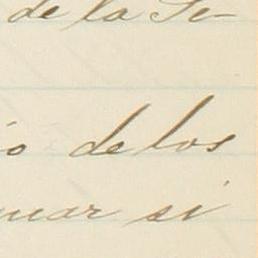 de la Se-
o de los
uar si